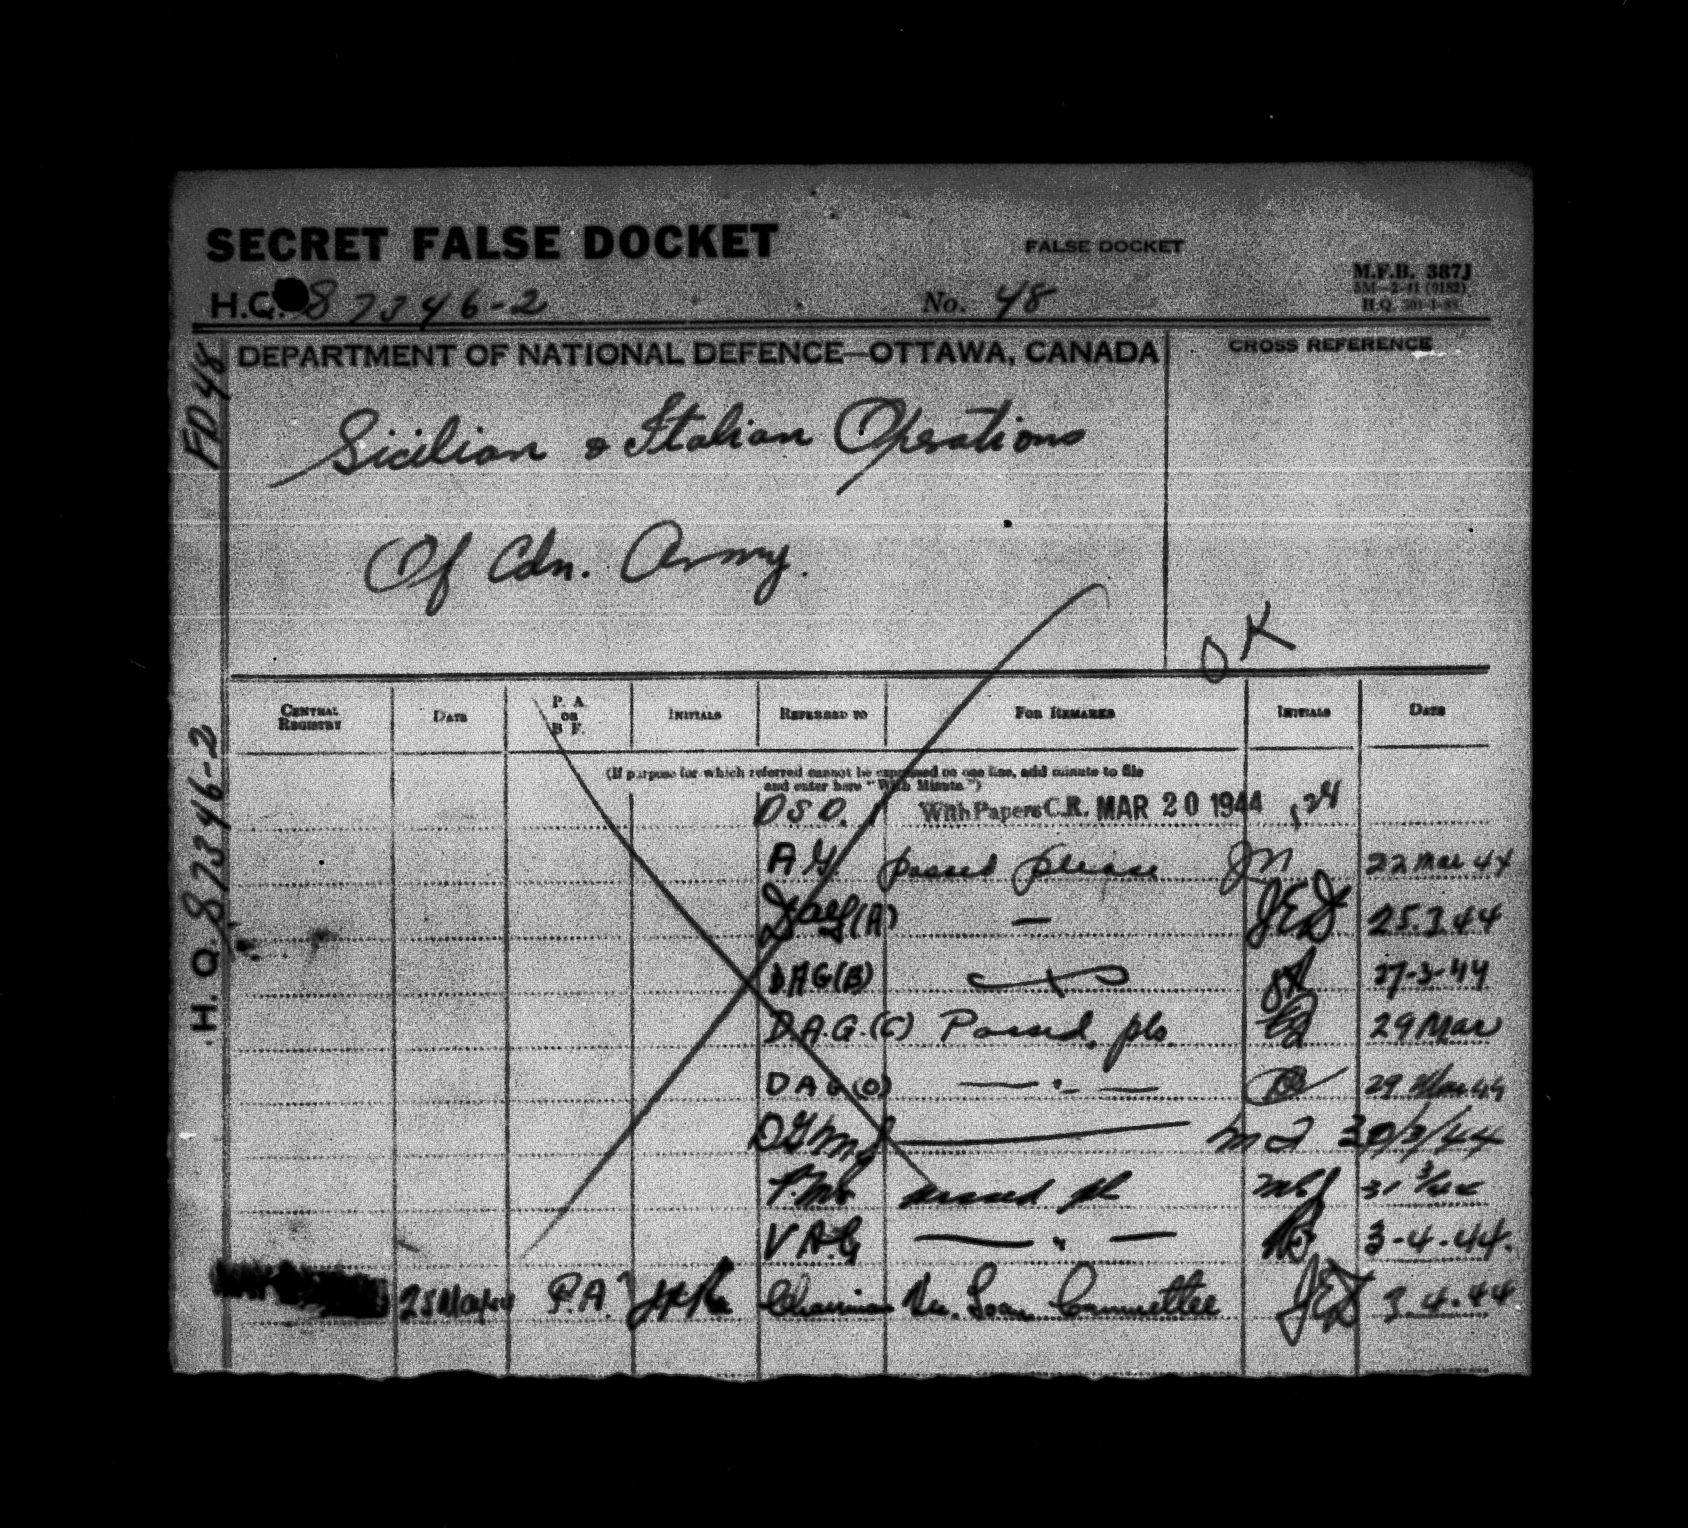 SECRET FALSE DOCKET
FALSE DOCKET
M.F.B. 387J
5M—2-41 (0182)
H.Q.
H.Q. 8 7346-2
No. 48
DEPARTMENT OF NATIONAL DEFENCE—OTTAWA, CANADA
CROSS REFERENCE
FD48
H. Q. 87346-2
Sicilian & Italian Operations
Of Cdn. Army.
OK
CENTRAL REGISTRY
DATE
P. A. OR B F.
INITIALS
REFERRED TO
FOR REMARKS
INITIALS
DATE
(If purpose for which referred cannot be expressed on one line, add minute to file
and enter here "With Minute.")
DSD. With Papers C.R. MAR 20 1944
A.G. passed please JM 22 Mar 44
DAG(A) — JED 25.3.44
DAG(B) 27-3-44
D.A.G.(C) Passed, pls. 29 Mar
DAG(O) — " — 29 Mar 44
DGMS MG 30/3/44
passed pl 31 3/44
VAG — " — 3-4-44.
25 Mar 44 P.A. Chairman Vic. Loan Committee JED 3.4.44